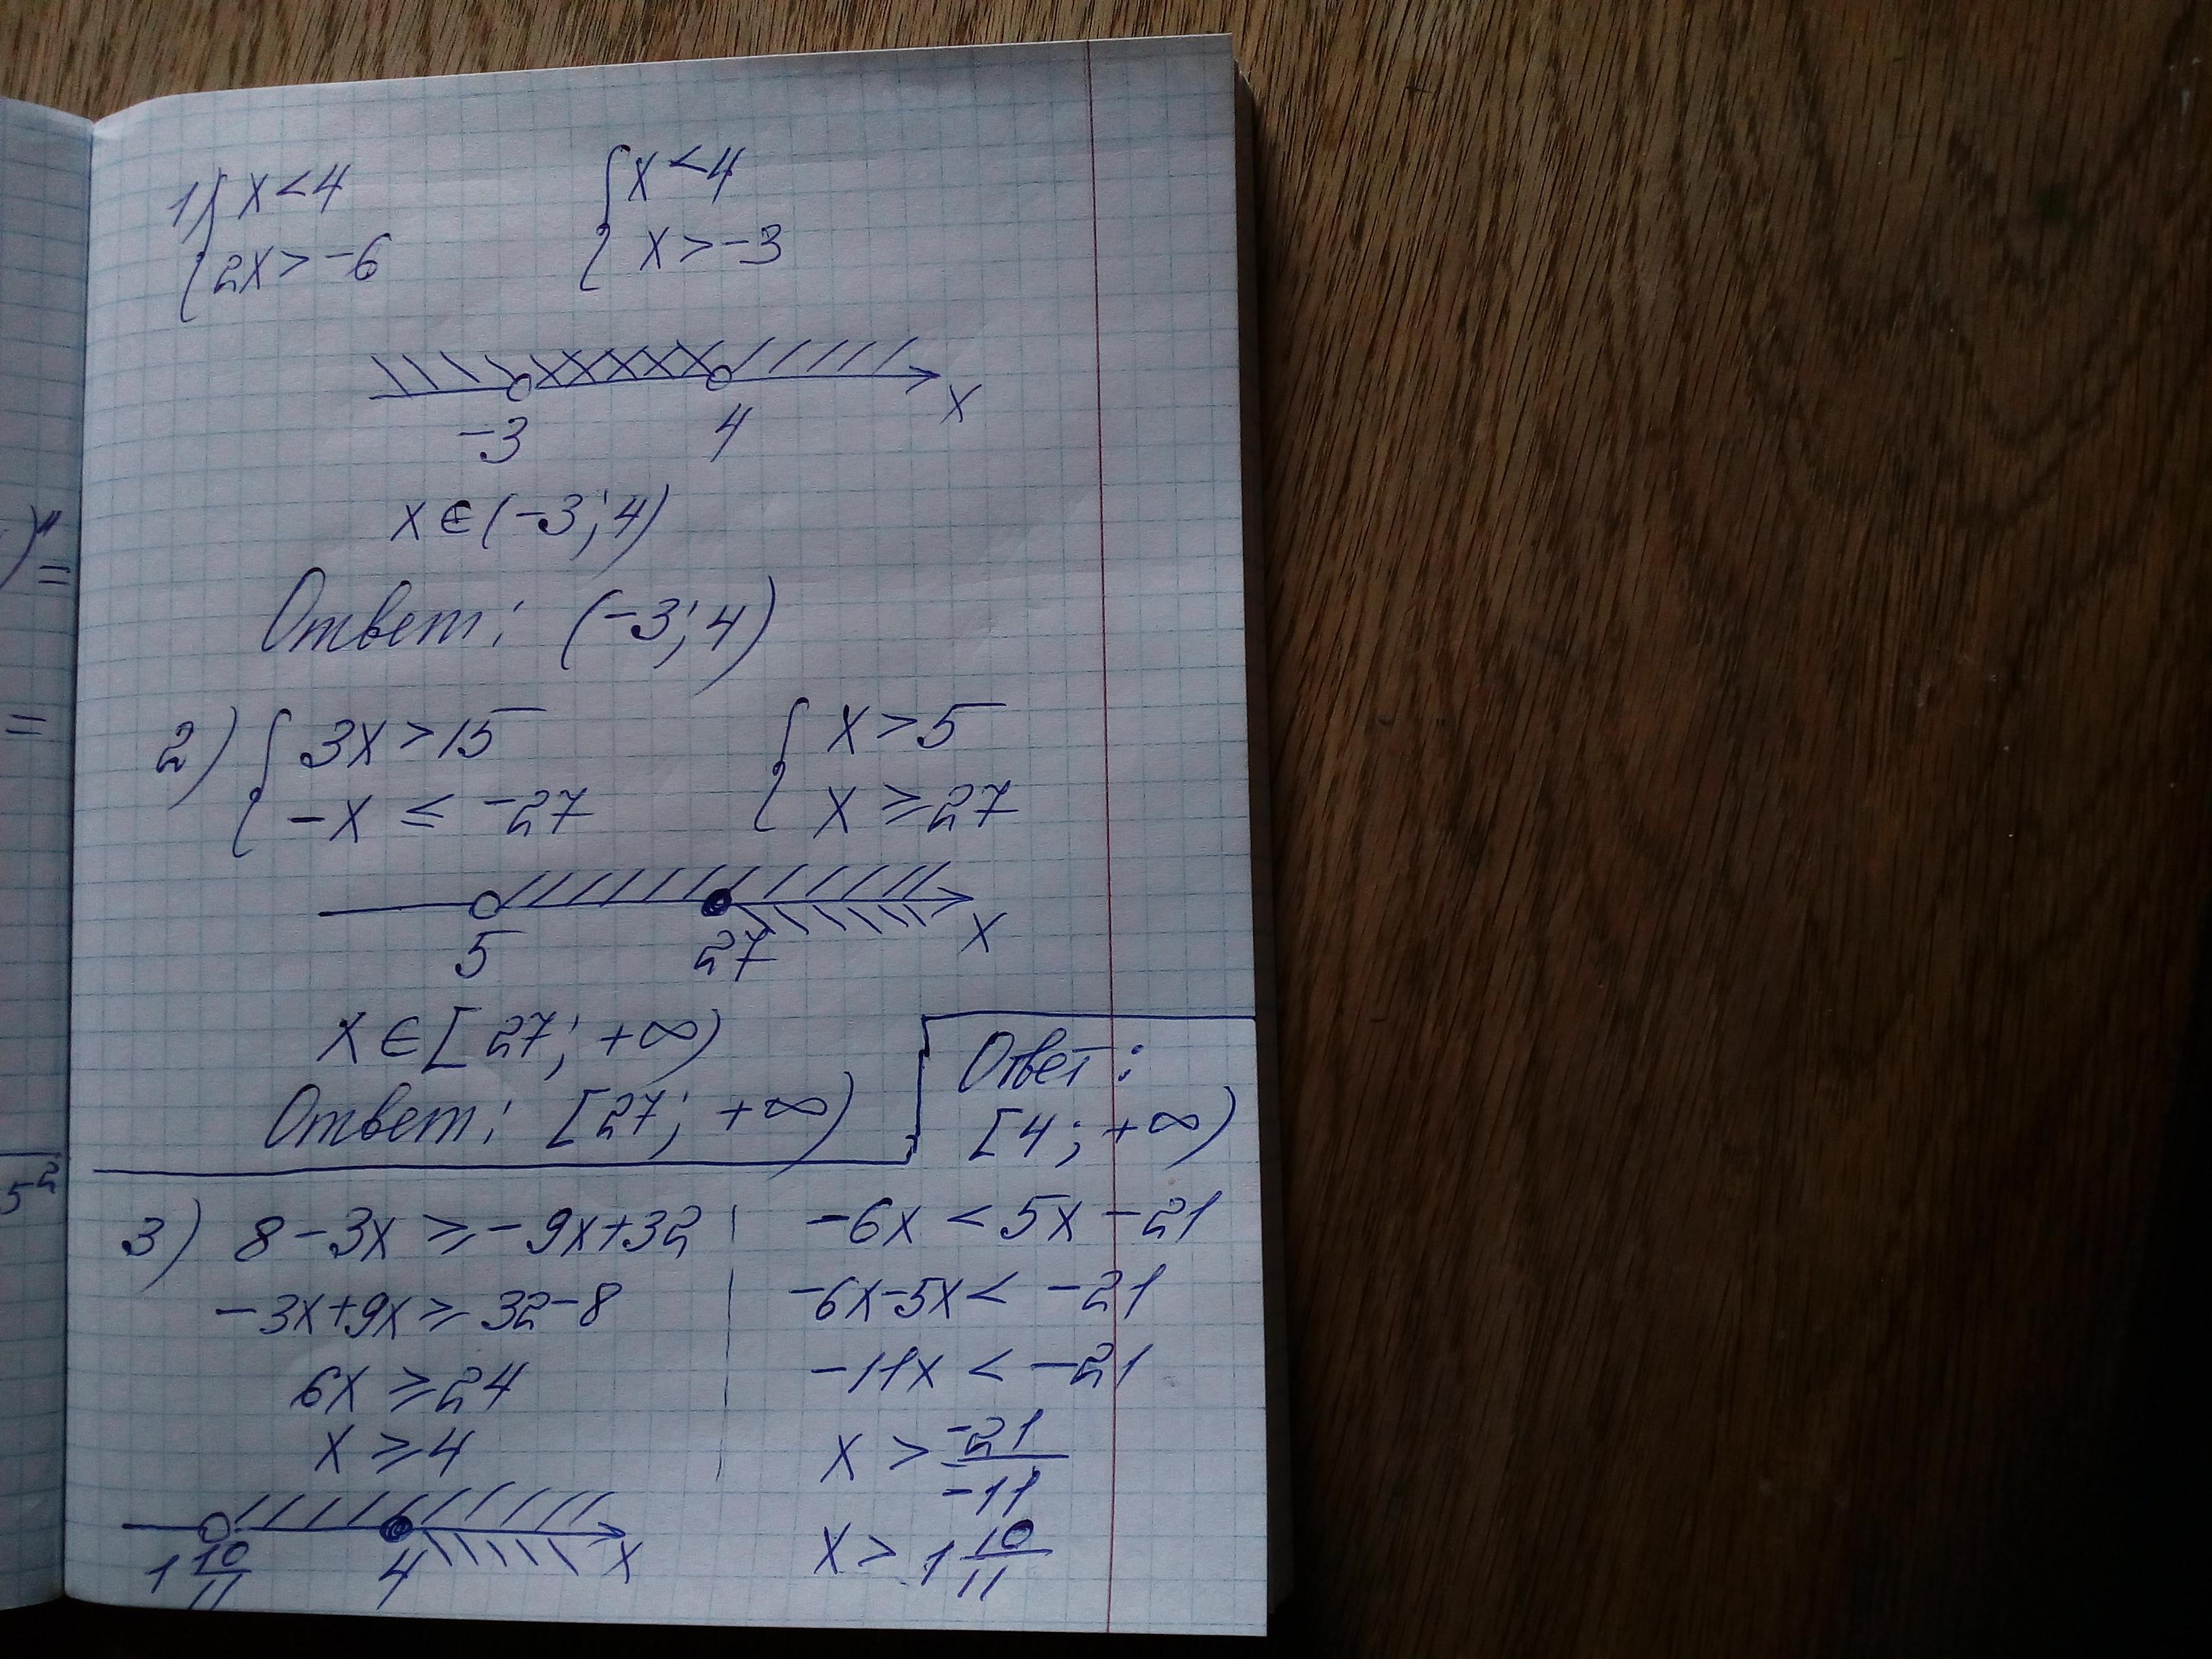 )" =
=
5²
1) { x < 4 { x < 4
2x > -6 x > -3
-3 4 x
x ∈ (-3; 4)
Ответ: (-3; 4)
2) { 3x > 15 { x > 5
-x ≤ -27 x ≥ 27
5 27 x
x ∈ [27; +∞)
Ответ: [27; +∞)
Ответ:
[4; +∞)
3) 8 - 3x ≥ -9x + 32
-3x + 9x ≥ 32 - 8
6x ≥ 24
x ≥ 4
1 10/11 4 x
-6x < 5x - 21
-6x - 5x < -21
-11x < -21
x > -21/-11
x > 1 10/11